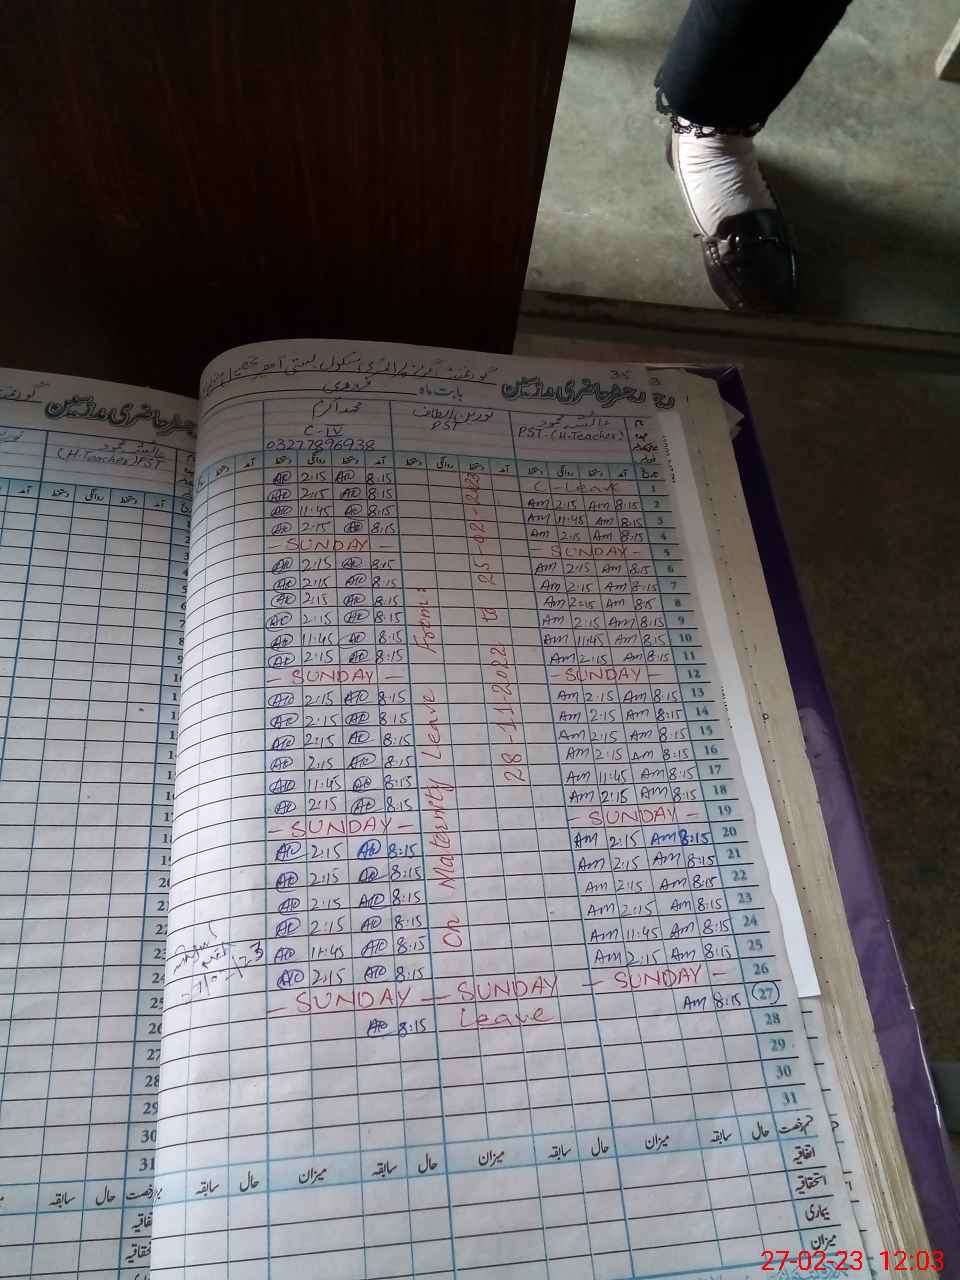 گورنمنٹ گرلز پرائمری سکول بستی
رجسٹر حاضری ملازمین
بابت ماہ فروری
عائشہ محمود
PST-(H.Teacher)
نورین الطاف
PST
محمد اکرم
C-IV
03277896938
آمد دستخط روانگی دستخط آمد دستخط روانگی دستخط آمد دستخط روانگی دستخط
1 C-Leave 8:15 2:15
2 8:15 Am 2:15 Am 8:15 2:15
3 8:15 Am 11:45 Am 8:15 11:45
4 8:15 Am 2:15 Am 8:15 2:15
5 - SUNDAY - - SUNDAY -
6 8:15 Am 2:15 Am 8:15 2:15
7 8:15 Am 2:15 Am 8:15 2:15
8 8:15 Am 2:15 Am 8:15 2:15
9 8:15 Am 2:15 Am 8:15 2:15
10 8:15 Am 11:45 Am 8:15 11:45
11 8:15 Am 2:15 Am 8:15 2:15
12 - SUNDAY - - SUNDAY -
13 8:15 Am 2:15 Am 8:15 2:15
14 8:15 Am 2:15 Am 8:15 2:15
15 8:15 Am 2:15 Am 8:15 2:15
16 8:15 Am 2:15 Am 8:15 2:15
17 8:15 Am 11:45 Am 8:15 11:45
18 8:15 Am 2:15 Am 8:15 2:15
19 - SUNDAY - - SUNDAY -
20 8:15 Am 2:15 Am 8:15 2:15
21 8:15 Am 2:15 Am 8:15 2:15
22 8:15 Am 2:15 Am 8:15 2:15
23 8:15 Am 2:15 Am 8:15 2:15
24 8:15 Am 11:45 Am 8:15 11:45
25 8:15 Am 2:15 Am 8:15 2:15
26 - SUNDAY - SUNDAY - SUNDAY -
27 8:15 Am Leave 8:15
28
29
30
31
On Maternity Leave From:
28-11-2022 to 25-02-2023
حال سابقہ میزان حال سابقہ میزان حال سابقہ میزان حال سابقہ
اتفاقیہ
استحقاقیہ
بیماری
میزان
رجسٹر حاضری ملازمین
عائشہ محمود
(H.Teacher) PST
آمد دستخط روانگی دستخط آمد
27
28
29
30
31
حال سابقہ
27-02-23 12:03